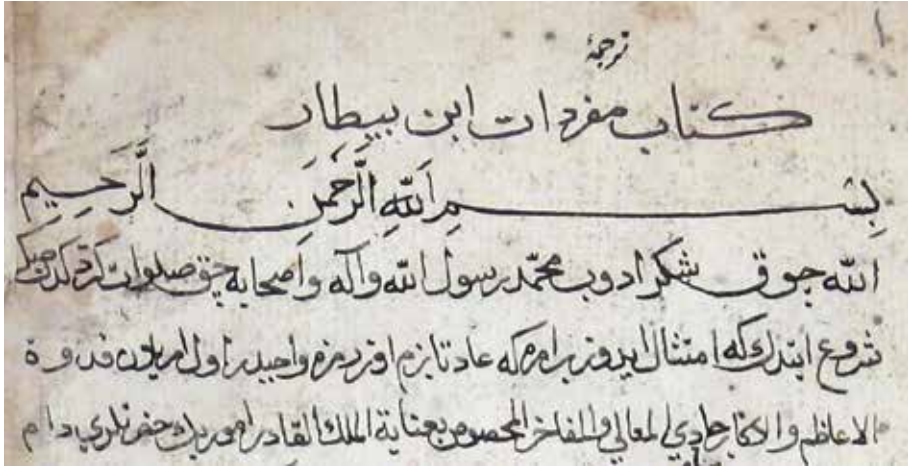 ١
ترجمهٔ
كتاب مفردات ابن بيطار
بِسْمِ اللّهِ الرَّحْمَنِ الَّرحِيم
اللّه چوق شكر ادوب محمّد رسول اللّه وآله واصحابه چق صلوات كتردكدنصكر
شروع ايتدك كه امتثال ايدوز بر امره كه عادتا بزم اوزرمزه واجبدر اول امر بودر قدوة
الاعاظم والاكابر حاوي المعالي والمفاخر المخصوص بعناية الملك القادر امور بك حضرتلري دام